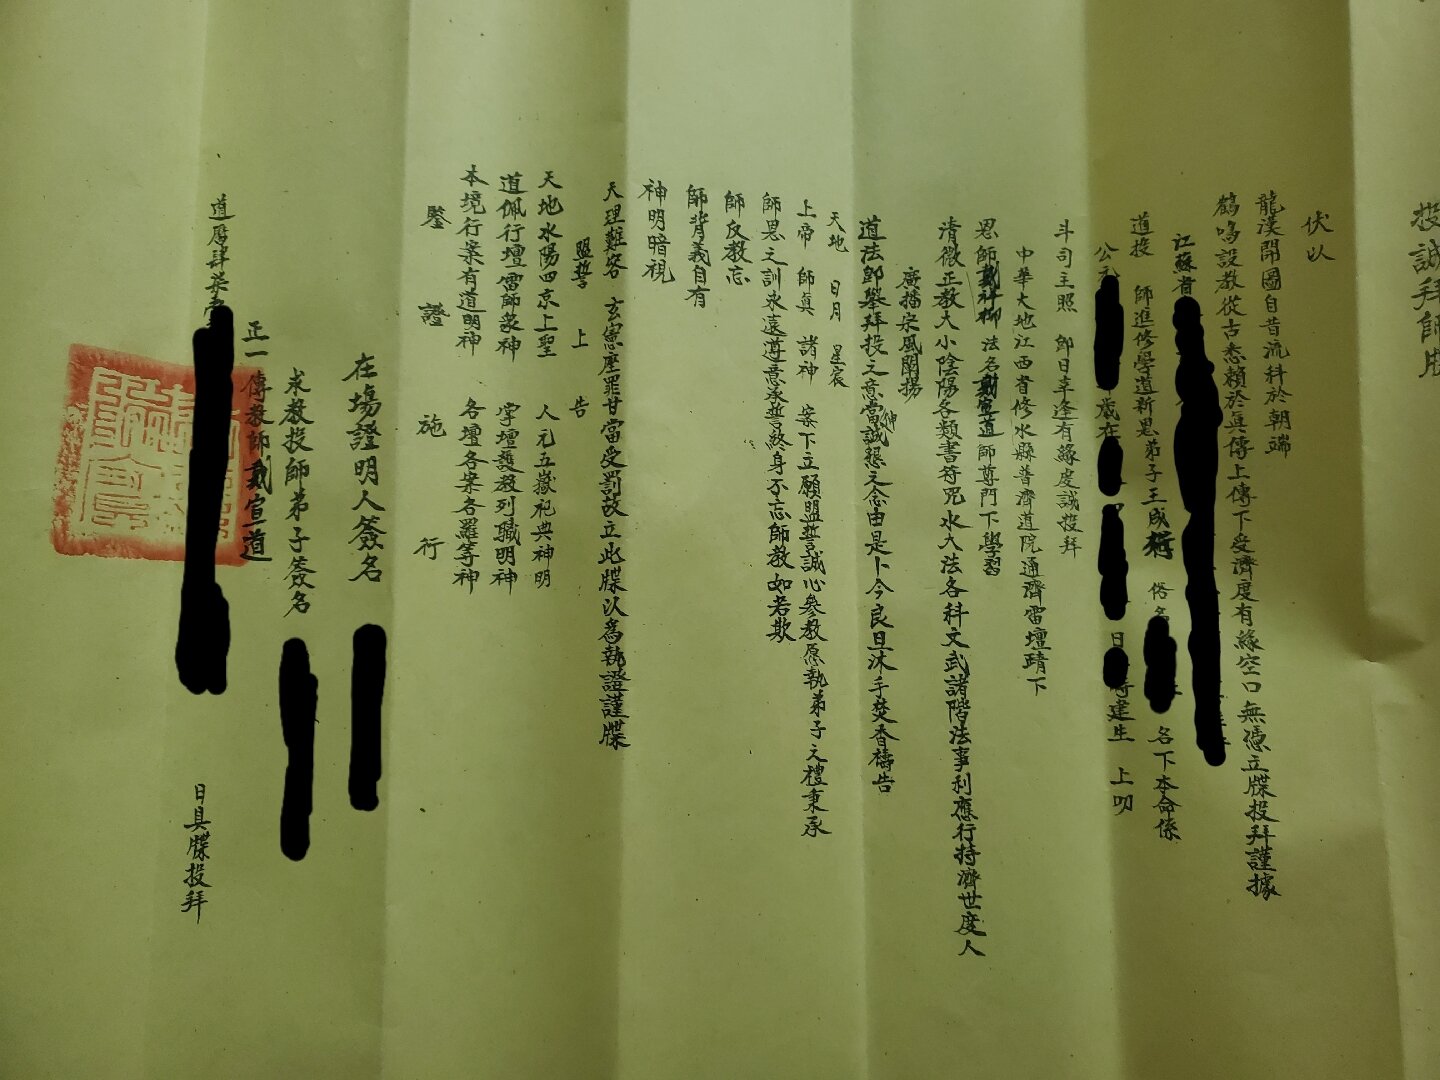 投誠拜師牒
伏以
龍漢開圖自昔流科於朝端
鶴鳴設教從古悉賴於真傳上傳下受濟度有緣空口無憑立牒投拜謹據
江蘇省
道投 師進修學道新恩弟子王成 俗名 名下本命係
歲在 日 時建生 上叨
斗司主照 即日幸逢有緣虔誠投拜
中華大地江西省修水縣普濟道院通濟雷壇靖下
恩師戴祥柳法名戴宣道師尊門下學習
清微正教大小陰陽各類書符咒水大法各科文武諸階法事利應行持濟世度人
廣播宗風闡揚
道法卽舉拜投之意當伸誠懇之念由是卜今良旦沐手焚香禱告
天地 日月 星宸
上帝 師真 諸神 案下立願盟誓誠心參教愿執弟子之禮秉承
師恩之訓永遠遵意承誓終身不忘師教如若欺
師反教忘
師背義自有
神明暗視
天理難容 玄憲座罪甘當受罰故立此牒以爲執證謹牒
盟誓 上 告
天地水陽四京上聖 人元五嶽祀典神明
道佩行壇雷師蒙神 掌壇護教列職明神
本境行案有道明神 各壇各案各羅等神
鑒 證 施 行
在場證明人簽名
求教投師弟子簽名
正一傳教師戴宣道
道歷肆柒 日具牒投拜